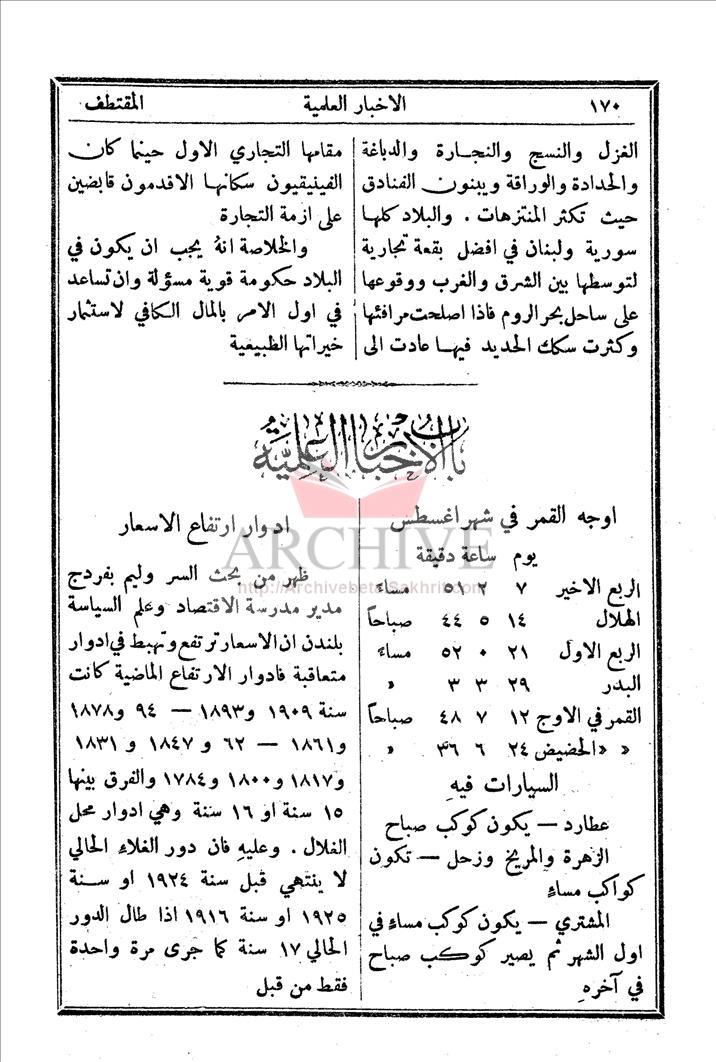 ١٧٠ الاخبار العلمية المقتطف
الغزل والنسج والنجارة والدباغة
والحدادة والوراقة ويبنون الفنادق
حيث تكثر المنتزهات . والبلاد كلها
سورية ولبنان في افضل بقعة تجارية
لتوسطها بين الشرق والغرب ووقوعها
على ساحل بحر الروم فاذا اصلحت مرافئها
وكثرت سكك الحديد فيها عادت الى
مقامها التجاري الاول حينما كان
الفينيقيون سكانها الاقدمون قابضين
على ازمة التجارة
والخلاصة انهُ يجب ان يكون في
البلاد حكومة قوية مسؤلة وان تساعد
في اول الامر بالمال الكافي لاستثمار
خيراتها الطبيعية
باب الاخبار العلمية
اوجه القمر في شهر اغسطس
يوم ساعة دقيقة
الربع الاخير ٧ ٢ ٥١ مساءً
الهلال ١٤ ٥ ٤٤ صباحاً
الربع الاول ٢١ ٠ ٥٢ مساءً
البدر ٢٩ ٣ ٣ »
القمر في الاوج ١٢ ٧ ٤٨ صباحاً
» » الحضيض ٢٤ ٦ ٣٦ »
السيارات فيهِ
عطارد — يكون كوكب صباح
الزهرة والمريخ وزحل — تكون
كواكب مساءٍ
المشتري — يكون كوكب مساءٍ في
اول الشهر ثم يصير كوكب صباح
في آخرهِ
ادوار ارتفاع الاسعار
ظهر من بحث السر وليم بفردج
مدير مدرسة الاقتصاد وعلم السياسة
بلندن ان الاسعار ترتفع وتهبط في ادوار
متعاقبة فادوار الارتفاع الماضية كانت
سنة ١٩٠٩ و١٨٩٣ — ٩٤ و١٨٧٨
و١٨٦١ — ٦٢ و ١٨٤٧ و ١٨٣١
و١٨١٧ و١٨٠٠ و١٧٨٤ والفرق بينها
١٥ سنة او ١٦ سنة وهي ادوار محل
الغلال . وعليهِ فان دور الغلاءِ الحالي
لا ينتهي قبل سنة ١٩٢٤ او سنة
١٩٢٥ او سنة ١٩١٦ اذا طال الدور
الحالي ١٧ سنة كما جرى مرة واحدة
فقط من قبل
ARCHIVE
http://Archivebeta.Sakhrit.com